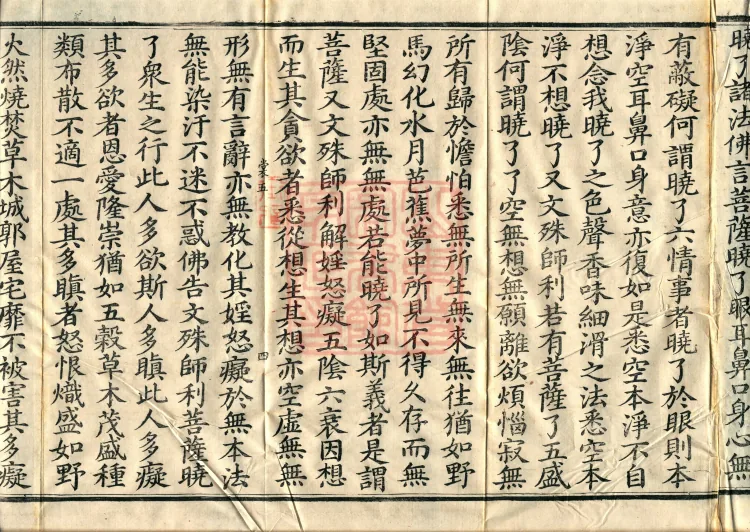 曉了諸法佛言菩薩曉了眼耳鼻口身心無
有蔽礙何謂曉了六情事者曉了於眼則本
淨空耳鼻口身意亦復如是悉空本淨不自
想念我曉了之色聲香味細滑之法悉空本
淨不想曉了又文殊師利若有菩薩了五盛
陰何謂曉了了空無想無願離欲煩惱寂無
所有歸於憺怕悉無所生無來無往猶如野
馬幻化水月芭蕉夢中所見不得久存而無
堅固處亦無無處若能曉了如斯義者是謂
菩薩又文殊師利解婬怒癡五陰六衰因想
而生其貪欲者悉從想生其想亦空虛無無
形無有言辭亦無教化其婬怒癡於無本法
無能染汙不迷不惑佛告文殊師利菩薩曉
了衆生之行此人多欲斯人多瞋此人多癡
其多欲者恩愛隆崇猶如五穀草木茂盛種
類布散不適一處其多瞋者怒恨熾盛如野
火然燒焚草木城郭屋宅靡不被害其多癡
四